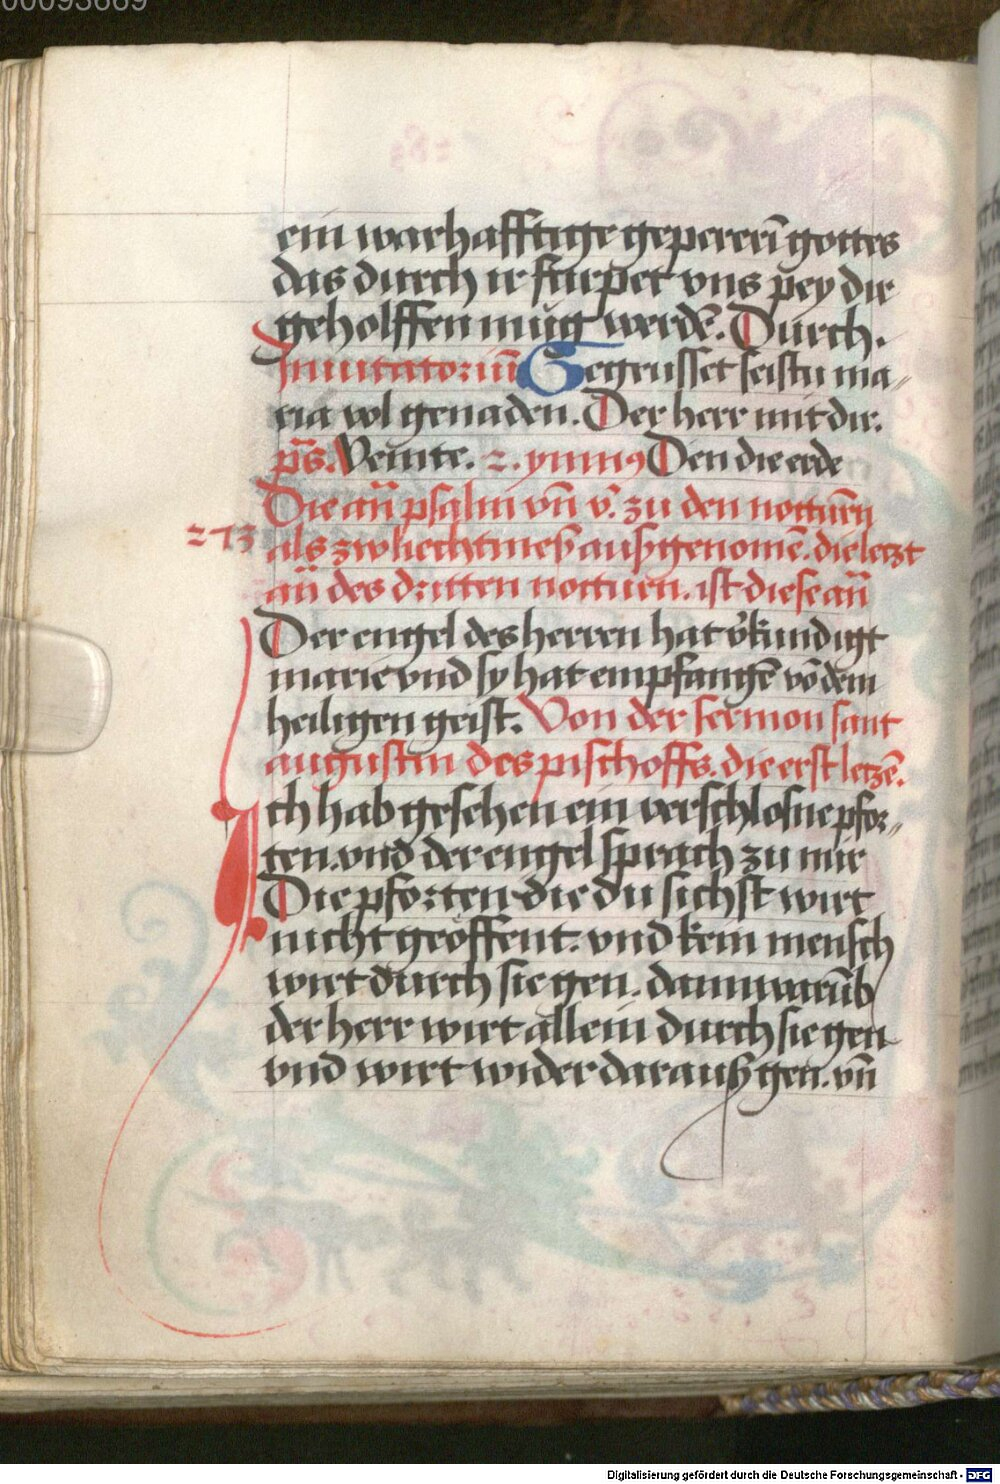 00093669
ein warhafftige gepererī gottes
das durch ir furpet vns pey dir
geholffen müg werdē. Durch.
Inuitatoriū Gegrusset seistu ma⸗
ria vol genaden. Der herr mit dir.
ps̄. Venite. 2. ymnꝰ Den die erde
Die an̄ psalm vn̄ v̓. zu den notturn̄
273 als zw liechtmeß außgenomē. die letzt
an̄ des dritten notturn. ist diese an̄
Der engel des herren hat v̓kundigt
marie vnd sy hat empfangē vō dem
heiligen geist. Von der sermon sant
augustin des pischoffs. die erst letzē.
Ich hab gesehen ein verschlosne pfor⸗
ten. vnd der engel sprach zu mir
Die pforten die du sichst wirt
nicht geöffent. vnd kein mensch
wirt durch sie gen. dann warūb
der herr wirt allein durch sie gen
vnd wirt wider darauß gen. vn̄
Digitalisierung gefördert durch die Deutsche Forschungsgemeinschaft - DFG